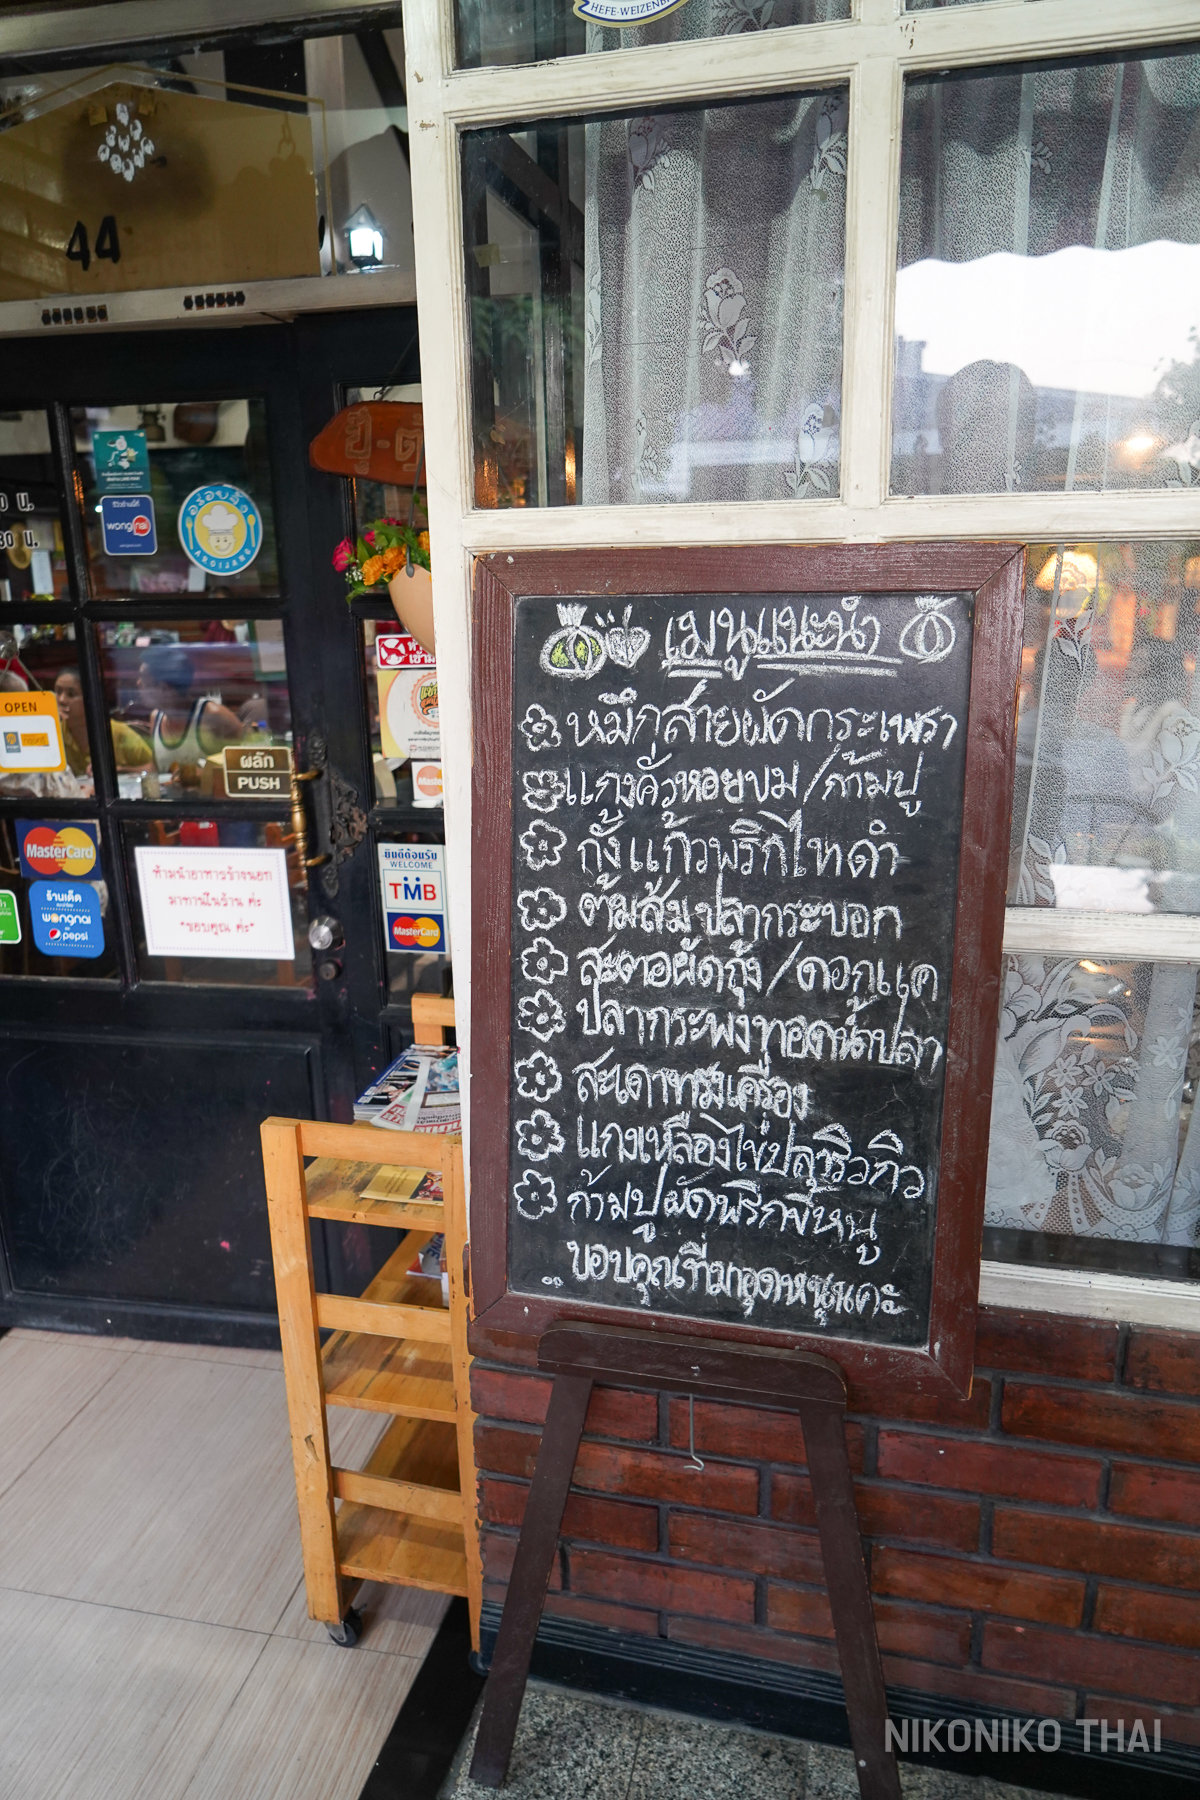 HEFE-WEIZENB
44
อู-ดี
0 น.
30 น.
รีวิวร้านนี้ที่
wongnai
อร่อยจัง
AROIJANG
OPEN
ผลัก
PUSH
MasterCard
ร้านเด็ด
wongnai
pepsi
ห้ามนำอาหารข้างนอก
มาทานในร้าน ค่ะ
"ขอบคุณ ค่ะ"
ยินดีต้อนรับ
WELCOME
TMB
MasterCard
เมนูแนะนำ
หมึกสายผัดกระเพรา
แกงคั่วหอยขม/ก้ามปู
กุ้งแก้วพริกไทดำ
ต้มส้มปลากระบอก
สะตอผัดกุ้ง/ดอกแค
ปลากระพงทอดน้ำปลา
สะเดาทรงเครื่อง
แกงเหลืองไข่ปลาริวกิว
ก้ามปูผัดพริกขี้หนู
ขอบคุณที่มาอุดหนุนคะ
NIKONIKO THAI